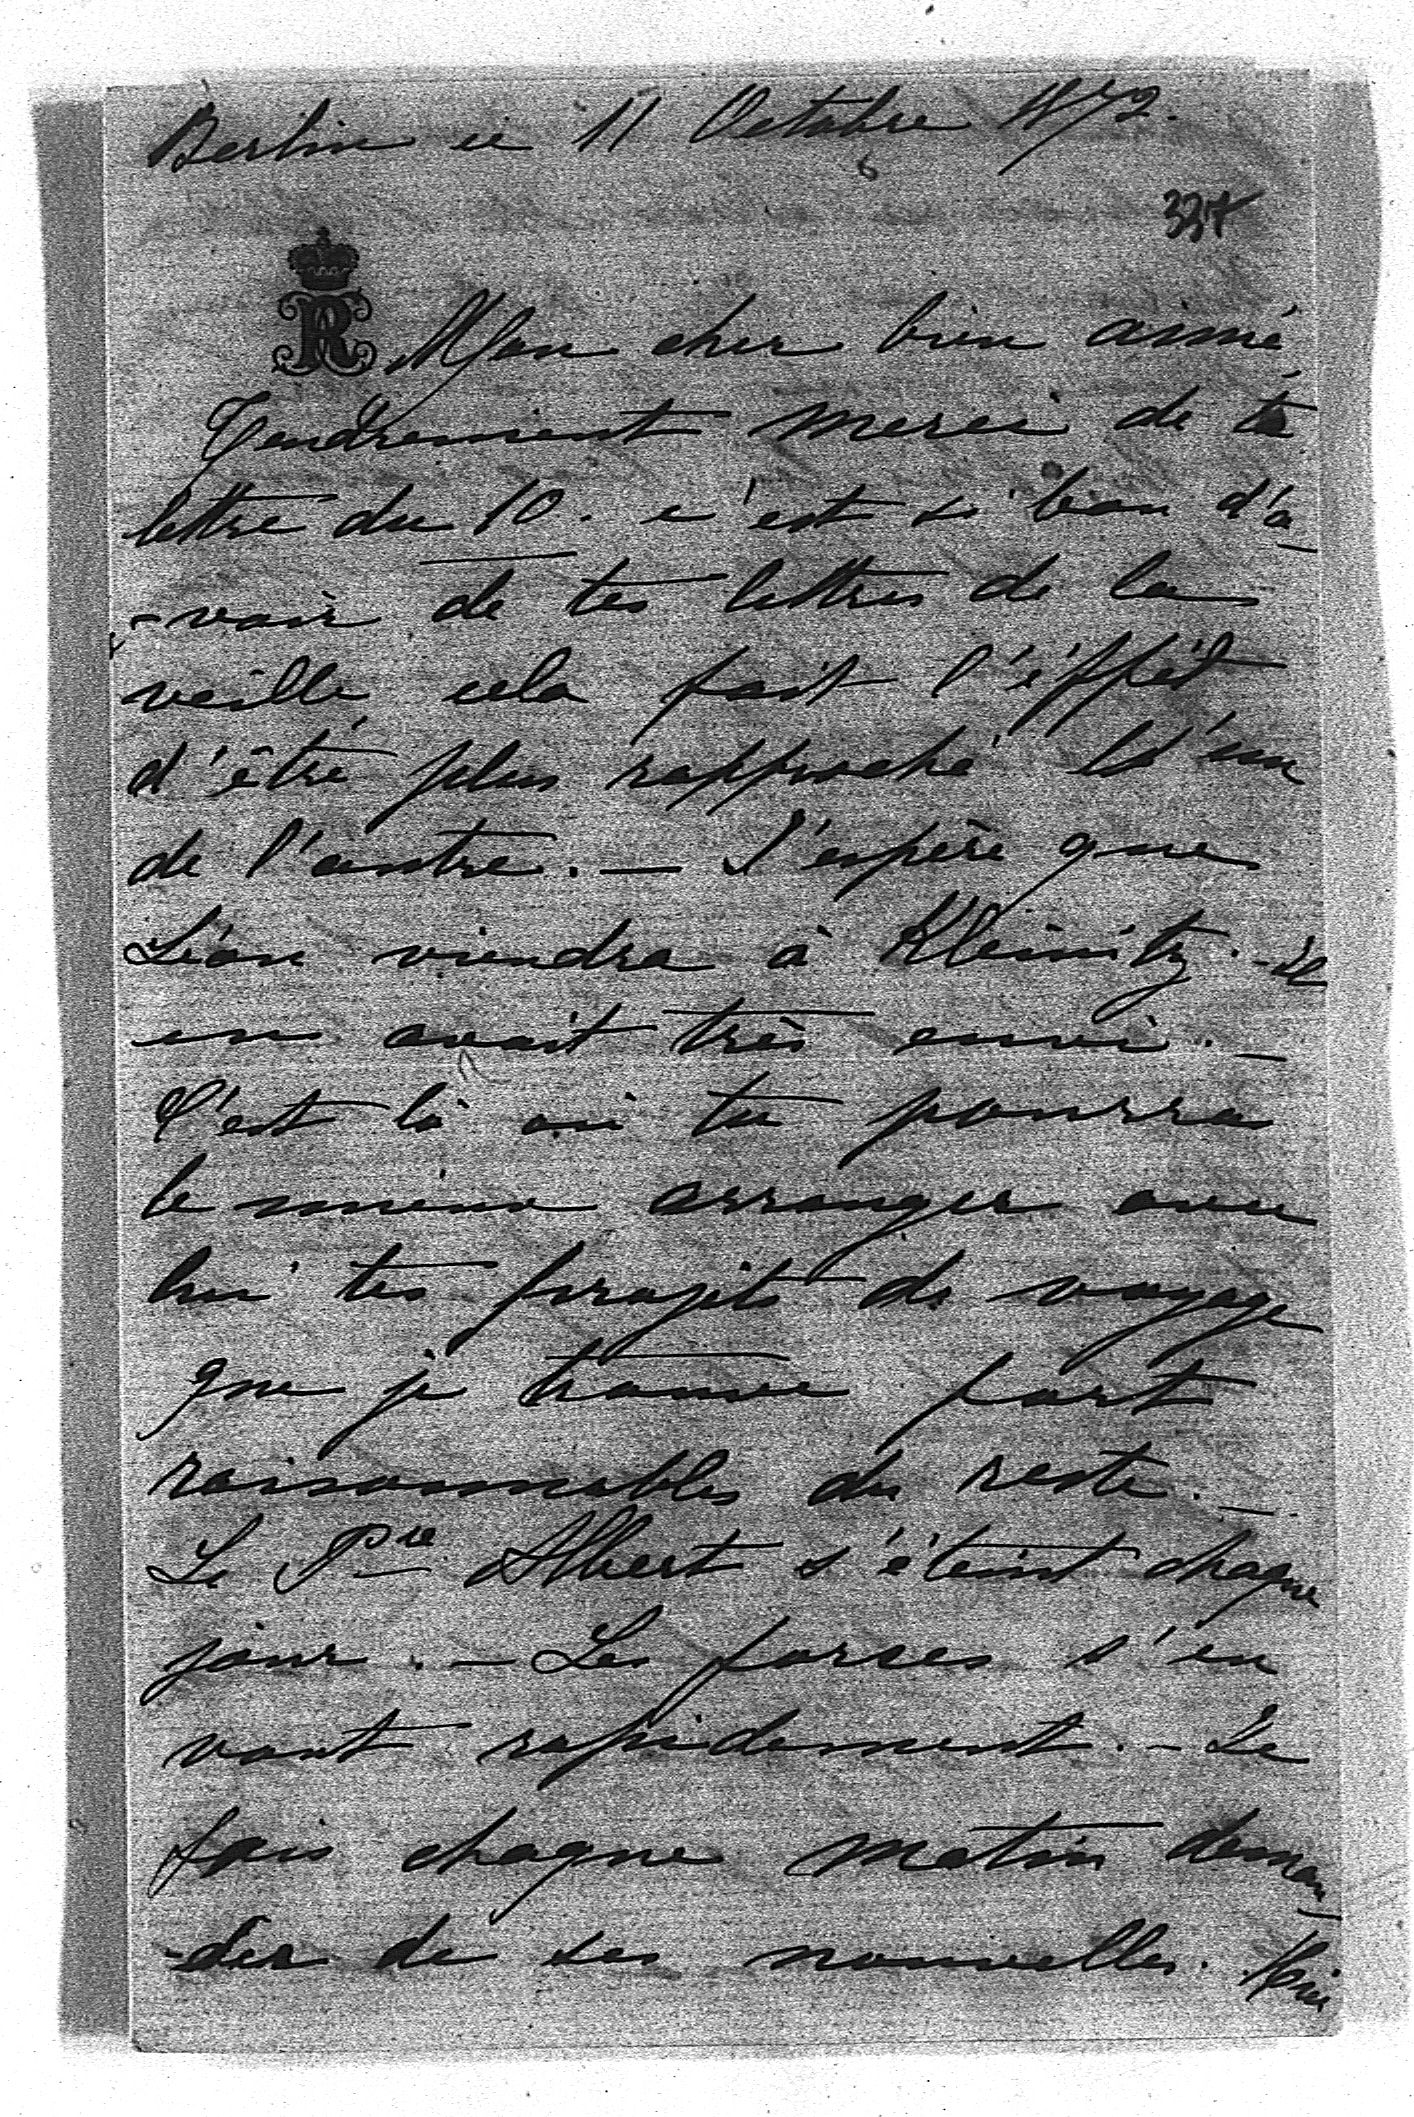 Berlin ce 11 Octobre 1872.
6
337
AR
Mon cher bien aimé
Tendrement merci de ta
lettre du 10. c'est si bon d'a-
-voir de tes lettres de la
veille cela fait l'éffèt
d'être plus rapproché l'un
de l'autre. — J'espère que
Léon viendra à Kleinitz. - Il
en avait très envie. —
C'est là où tu pourra
le mieux arranger avec
lui tes projets de voyage
que je trouve fort
raisonnables du reste. —
Le Pce Albert s'éteint chaque
jour. — Les forces s'en
vont rapidement. — Je
fais chaque matin deman-
-der de ses nouvelles.